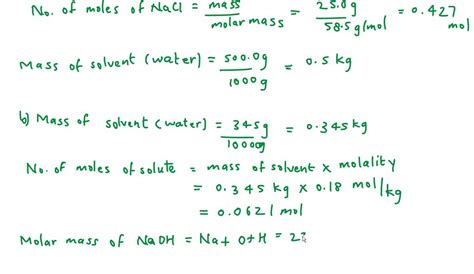 No. of moles of NaCl = mass / molar mass = 25.0g / 58.5g/mol = 0.427 mol
Mass of solvent (water) = 500.0g / 1000g = 0.5 kg
b) Mass of solvent (water) = 345g / 10000g = 0.345 kg
No. of moles of solute = mass of solvent x molality
= 0.345 kg x 0.18 mol/kg
= 0.0621 mol
Molar mass of NaOH = Na + O + H = 2